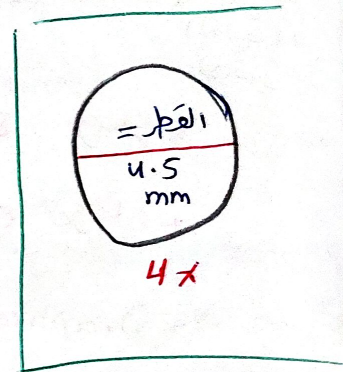 القطر =
4.5
mm
4x